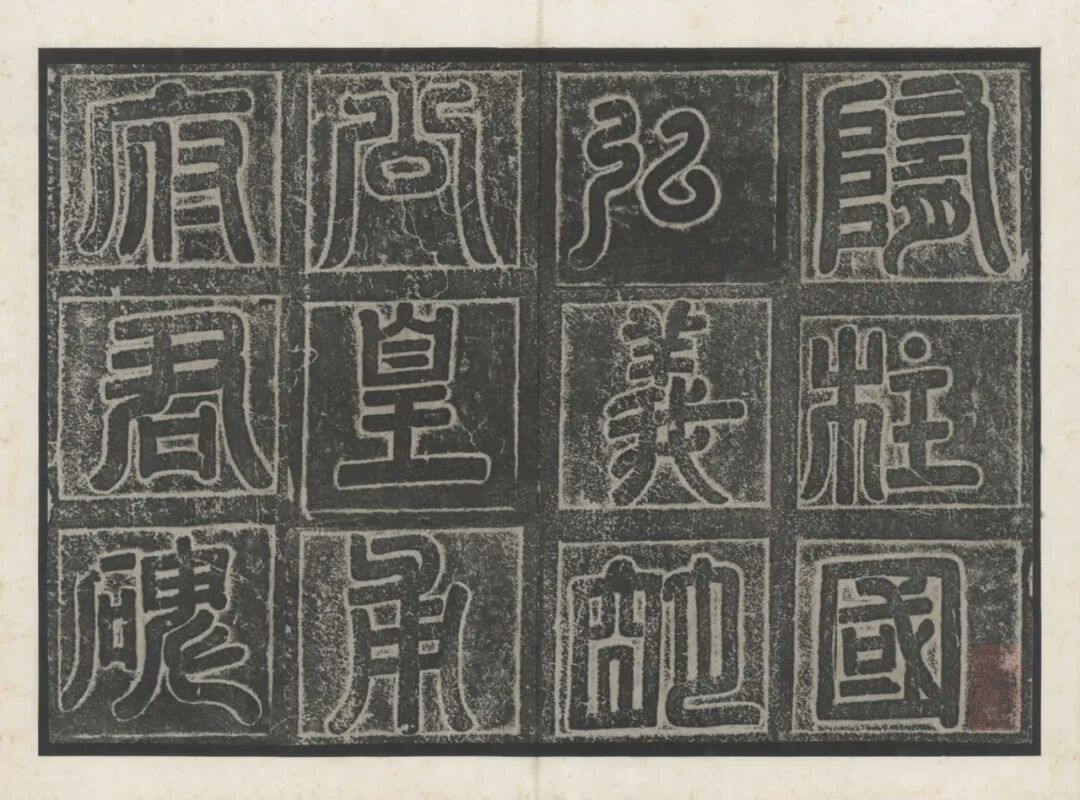 隋柱國
弘義明
公皇甫
府君碑